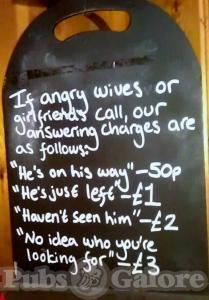 If angry wives or
girlfriends call, our
answering charges are
as follows:
"He's on his way" – 50p
"He's just left" – £1
"Haven't seen him" – £2
"No idea who you're
looking for" – £3
Pubs Galore